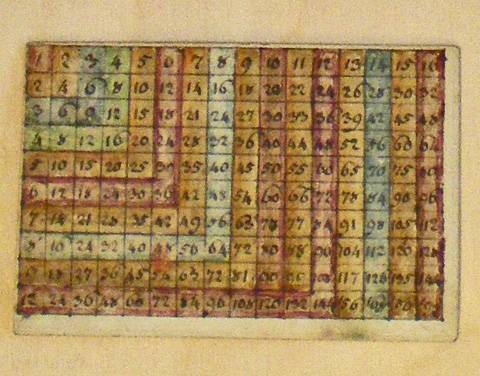 1 2 3 4 5 6 7 8 9 10 11 12 13 14 15 16
2 4 6 8 10 12 14 16 18 20 22 24 26 28 30 32
3 6 9 12 15 18 21 24 27 30 33 36 39 42 45 48
4 8 12 16 20 24 28 32 36 40 44 48 52 56 60 64
5 10 15 20 25 30 35 40 45 50 55 60 65 70 75 80
6 12 18 24 30 36 42 48 54 60 66 72 78 84 90 96
7 14 21 28 35 42 49 56 63 70 77 84 91 98 105 112
8 16 24 32 40 48 56 64 72 80 88 96 104 112 120 128
9 18 27 36 45 54 63 72 81 90 99 108 117 126 135 144
12 24 36 48 60 72 84 96 108 120 132 144 156 168